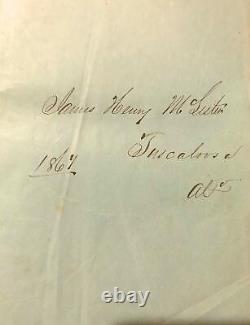 James Henry McLester
Tuscaloosa
1867
Ala
ebay